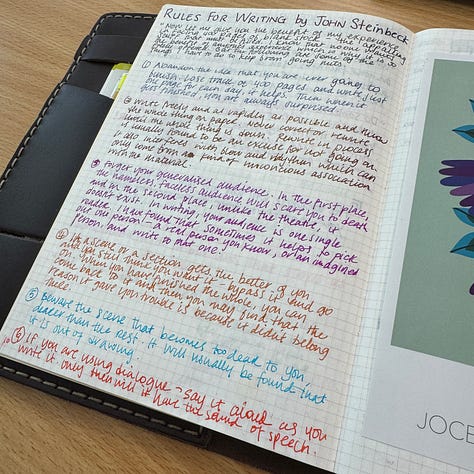 RULES FOR WRITING by JOHN STEINBECK
"Now let me give you the benefit of my experience
in facing 400 pages of blank stuff - the appalling
stuff that must be filled. I know that no one
really wants the benefit of anyone's experience which is
probably why it is so freely offered. But the following are some of the
things I have had to do to keep from going nuts.
① Abandon the idea that you are ever going to
finish. Lose track of 400 pages and write just
one page for each day, it helps. Then when it
gets finished, you are always surprised.
② Write freely and as rapidly as possible and throw
the whole thing on paper. Never correct or rewrite
until the whole thing is down. Rewrite in process
is usually found to be an excuse for not going on.
It also interferes with flow and rhythm which can
only come from a kind of unconscious association
with the material.
③ Forget your generalised audience. In the first place,
the nameless, faceless audience will scare you to death
and in the second place, unlike the theatre, it
doesn't exist. In writing, your audience is one single
reader. I have found that sometimes it helps to pick
out one person - a real person you know, or an imagined
person, and write to that one.
④ If a scene or a section gets the better of you
and you still think you want it - bypass it and go
on. When you have finished the whole you can
come back to it and then you may find that the
reason it gave you trouble is because it didn't belong
there.
⑤ Beware the scene that becomes too dear to you,
dearer than the rest. It will usually be found that
it is out of drawing.
⑥ If you are using dialogue - say it aloud as you
write it. Only then will it have the sound of speech.
JOCE